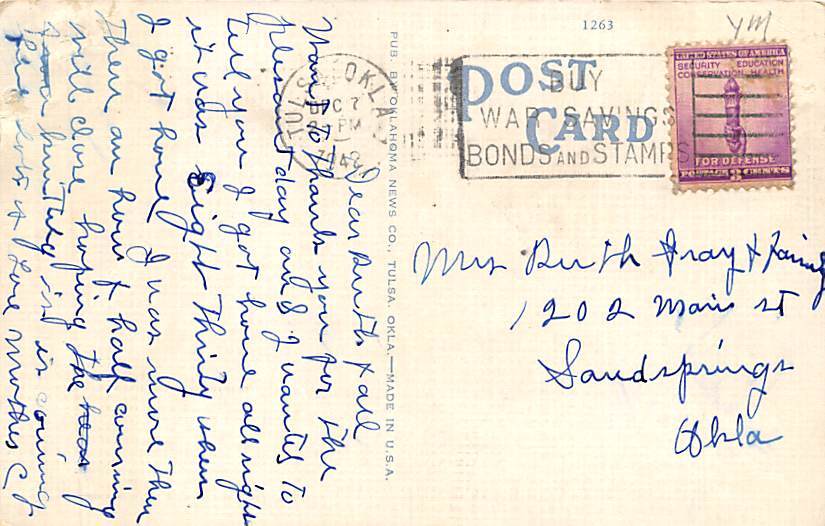 1263
YM
POST
CARD
TULSA, OKLA.
DEC 7
PM
1942
BUY
WAR SAVINGS
BONDS AND STAMPS
UNITED STATES OF AMERICA
SECURITY EDUCATION
CONSERVATION HEALTH
FOR DEFENSE
POSTAGE 3 CENTS
PUB. BY OKLAHOMA NEWS CO., TULSA, OKLA.—MADE IN U.S.A.
Dear Ruth & all
Want to thank you for the
plesant day and I wanted to
tell you I got home all right
it was Eight Thirty when
I got home I was more then
Then an hour & half coming
will close hoping the
hunting is coming
fine lots of Love Mother C
Mrs Ruth Gray & Family
1202 Main St
Sandsprings
Okla